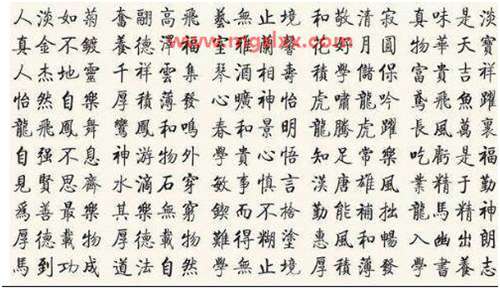 人淡如菊 奮翮高飛 藝無止境 和敬清寂 真味是淡
真金不鍍 養德 花好月圓 物華天寶
人杰地靈 千祥雲集 琴 積學儲 富貴吉祥
怡然自樂 厚積薄發 心曠神怡 虎嘯龍吟 鳶飛魚躍
龍飛鳳舞 鸞鳳和鳴 春和景明 龍騰虎躍 長風萬裏
自强不息 神游物外 學貴心悟 知足常樂 吃虧是福
見賢思齊 水滴石穿 敏事慎言 漢唐雄風 業精于勤
爲善最樂 其樂無窮 鍥而不捨 勤能補拙 龍馬精神
厚德載物 厚德載物 難得糊塗 惠風和暢 入幽出朗
馬到功成 道法自然 學無止境 厚積薄發 學書養志
www.mgxlxx.com